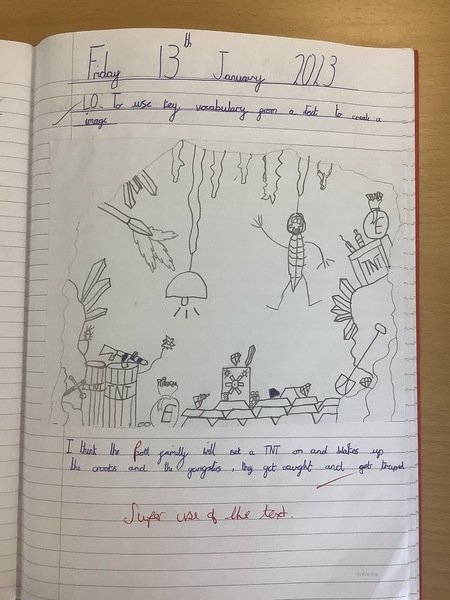 Friday 13th January 2023
LO: To use key vocabulary from a text to create a
image
E
TNT
NT
£
I think the family will set a TNT on and blows up
the crooks and the , they get caught and gets traped
Super use of the text.